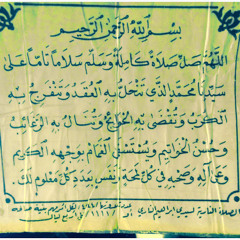 بِسْمِ اللَّهِ الرَّحْمَنِ الرَّحِيمِ
اللَّهُمَّ صَلِّ صَلَاةً كَامِلَةً وَسَلِّمْ سَلَامًا تَامًّا عَلَى
سَيِّدِنَا مُحَمَّدٍ الَّذِي تَنْحَلُّ بِهِ الْعُقَدُ وَتَنْفَرِجُ بِهِ
الْكُرَبُ وَتُقْضَى بِهِ الْحَوَائِجُ وَتُنَالُ بِهِ الرَّغَائِبُ
وَحُسْنُ الْخَوَاتِيمِ وَيُسْتَسْقَى الْغَمَامُ بِوَجْهِهِ الْكَرِيمِ
وَعَلَى آلِهِ وَصَحْبِهِ فِي كُلِّ لَمْحَةٍ وَنَفَسٍ بِعَدَدِ كُلِّ مَعْلُومٍ لَكَ
الصلاة التازية لسيدي إبراهيم التازي